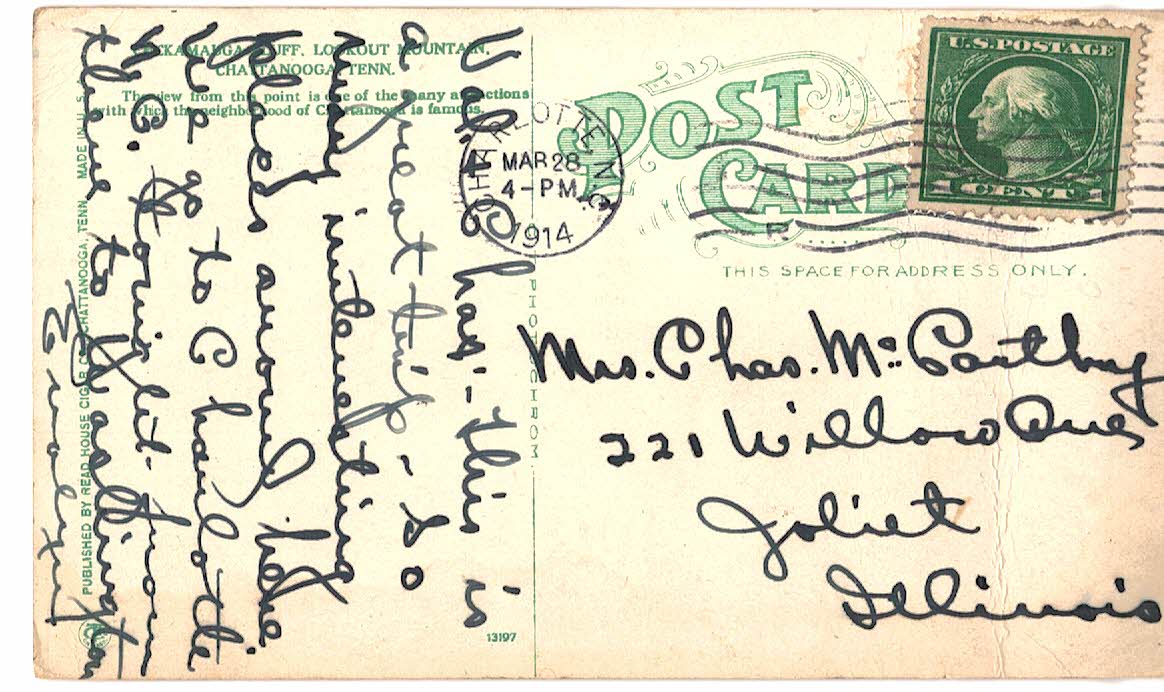 CHICKAMAUGA BLUFF, LOOKOUT MOUNTAIN,
CHATTANOOGA, TENN.
The view from this point is one of the many attractions
with which the neighborhood of Chattanooga is famous.
PUBLISHED BY READ HOUSE CIGAR CO., CHATTANOOGA, TENN. MADE IN U.S.
Chas - This is
a great trip - so
many interesting
places around here.
We go to Charlotte
N.C. tonight - from
there to Washington
PHOTOCHROM
13197
POST
CARD
CHARLOTTE, N.C.
MAR 28
4-PM
1914
U.S. POSTAGE
1 CENT 1
THIS SPACE FOR ADDRESS ONLY.
Mrs. Chas. Mc Carthy
221 Willow Ave
Joliet
Illinois